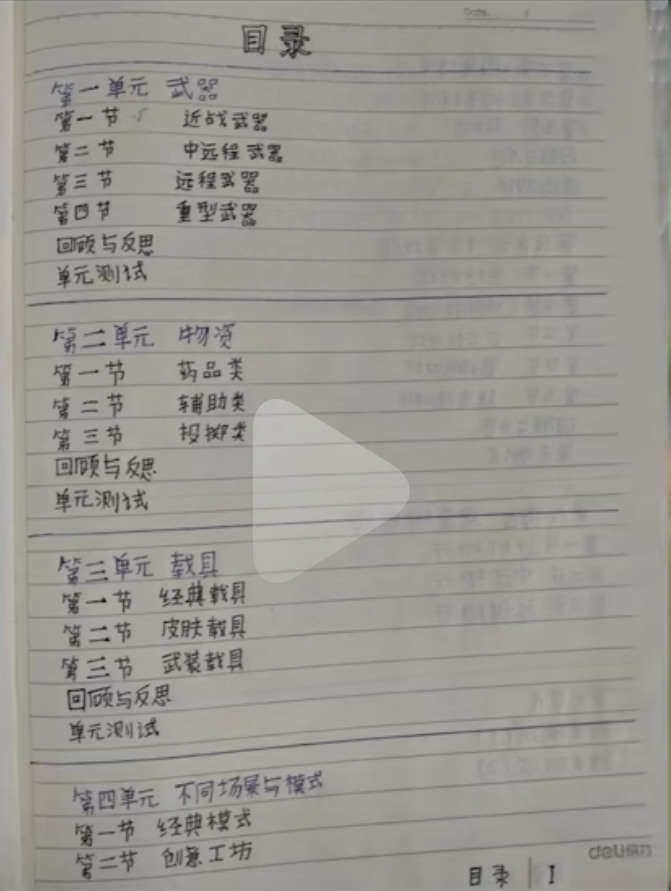 Date
目录
第一单元 武器
第一节 近战武器
第二节 中远程武器
第三节 远程武器
第四节 重型武器
回顾与反思
单元测试
第二单元 物资
第一节 药品类
第二节 辅助类
第三节 投掷类
回顾与反思
单元测试
第三单元 载具
第一节 经典载具
第二节 皮肤载具
第三节 武装载具
回顾与反思
单元测试
第四单元 不同场景与模式
第一节 经典模式
第二节 创意工坊
deli得力
目录 1